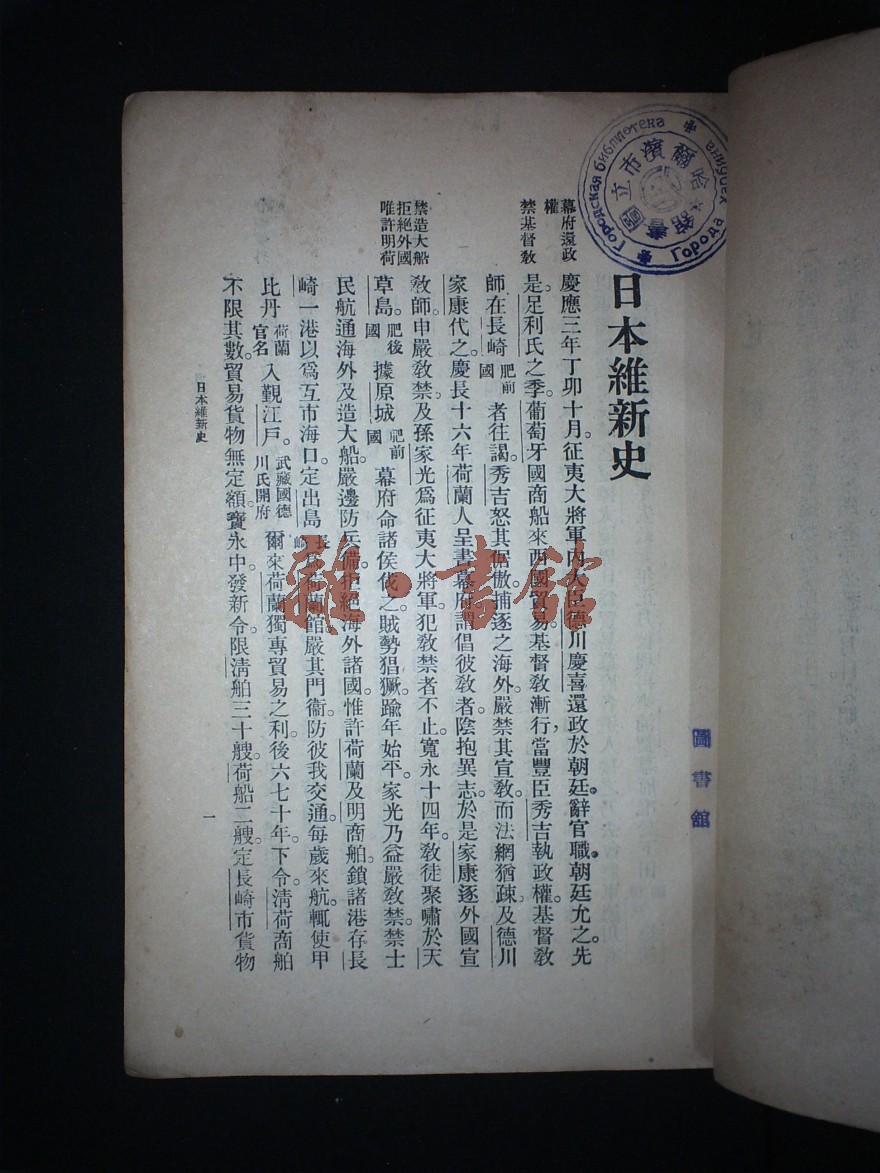 日本維新史
幕府還政
權
禁基督教
禁造大船
拒絕外國
唯許明荷
慶應三年丁卯十月。征夷大將軍內大臣德川慶喜還政於朝廷。辭官職。朝廷允之。先
是。足利氏之季。葡萄牙國商船來西國貿易。基督教漸行。當豐臣秀吉執政權。基督教
師在長崎肥前國者往謁。秀吉怒其倨傲。捕逐之海外。嚴禁其宣敎。而法網猶疎。及德川
家康代之。慶長十六年。荷蘭人呈書幕府。謂倡彼敎者。陰抱異志。於是家康逐外國宣
敎師。申嚴敎禁。及孫家光爲征夷大將軍。犯敎禁者不止。寬永十四年。敎徒聚嘯於天
草島。肥後國據原城肥前國幕府命諸侯伐之。賊勢猖獗。踰年始平。家光乃益嚴敎禁。禁士
民航通海外及造大船。嚴邊防兵備。拒絕海外諸國。惟許荷蘭及明商舶。鎖諸港。存長
崎一港以爲互市海口。定出島長崎爲荷蘭館。嚴其門衞。防彼我交通。每歲來航。輒使甲
比丹荷蘭官名入覲江戶。武藏國德川氏開府爾來荷蘭獨專貿易之利。後六七十年。下令。淸荷商舶
不限其數。貿易貨物無定額。寶永中。發新令。限淸舶三十艘。荷船二艘。定長崎市貨物
日本維新史
一
Городская библиотека
Города
哈爾濱市立圖書館
圖書館
雜·書館